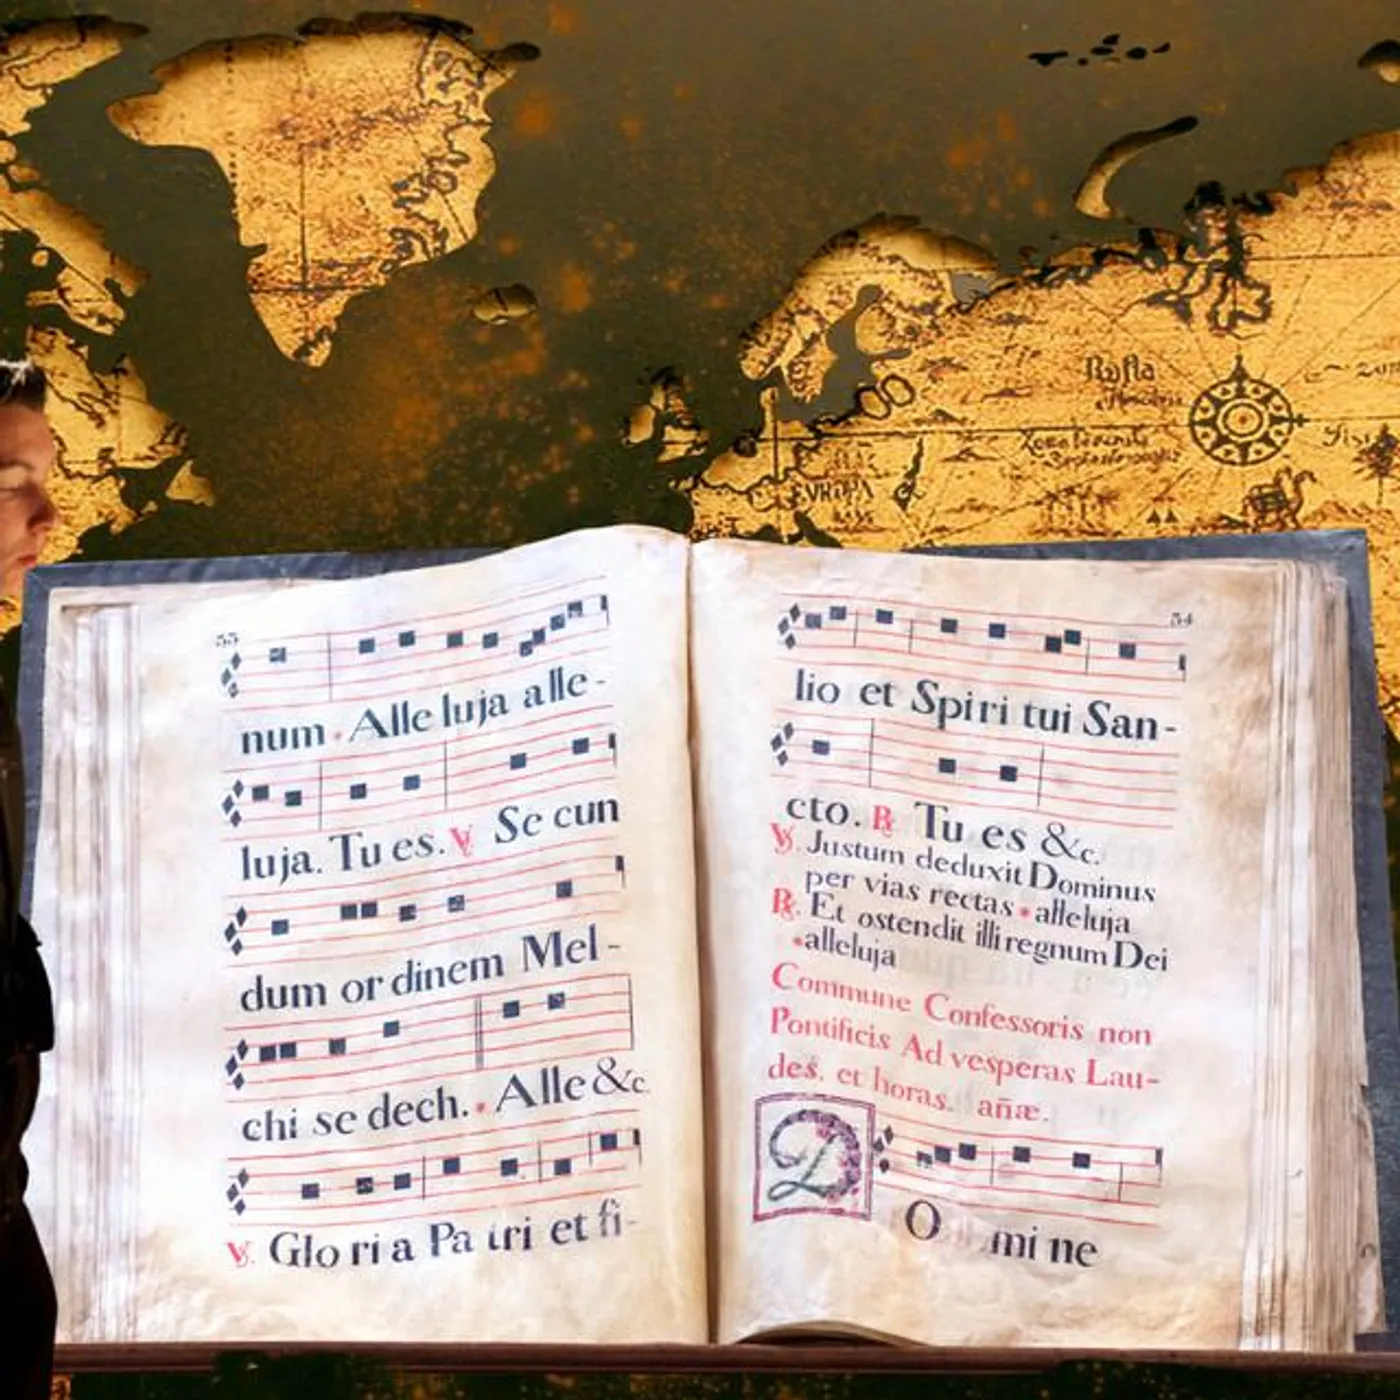 Rufsia
EVROPA
53
num. Alle luja alle-
luja. Tu es. ℣ Se cun
dum or dinem Mel-
chi se dech. Alle &c.
℣. Glo ri a Pa tri et fi-
54
lio et Spiri tui San-
cto. ℟ Tu es &c.
℣. Justum deduxit Dominus
per vias rectas • alleluja
℟. Et ostendit illi regnum Dei
•alleluja
Commune Confessoris non
Pontificis Ad vesperas Lau-
des. et horas. añæ.
DO mi ne